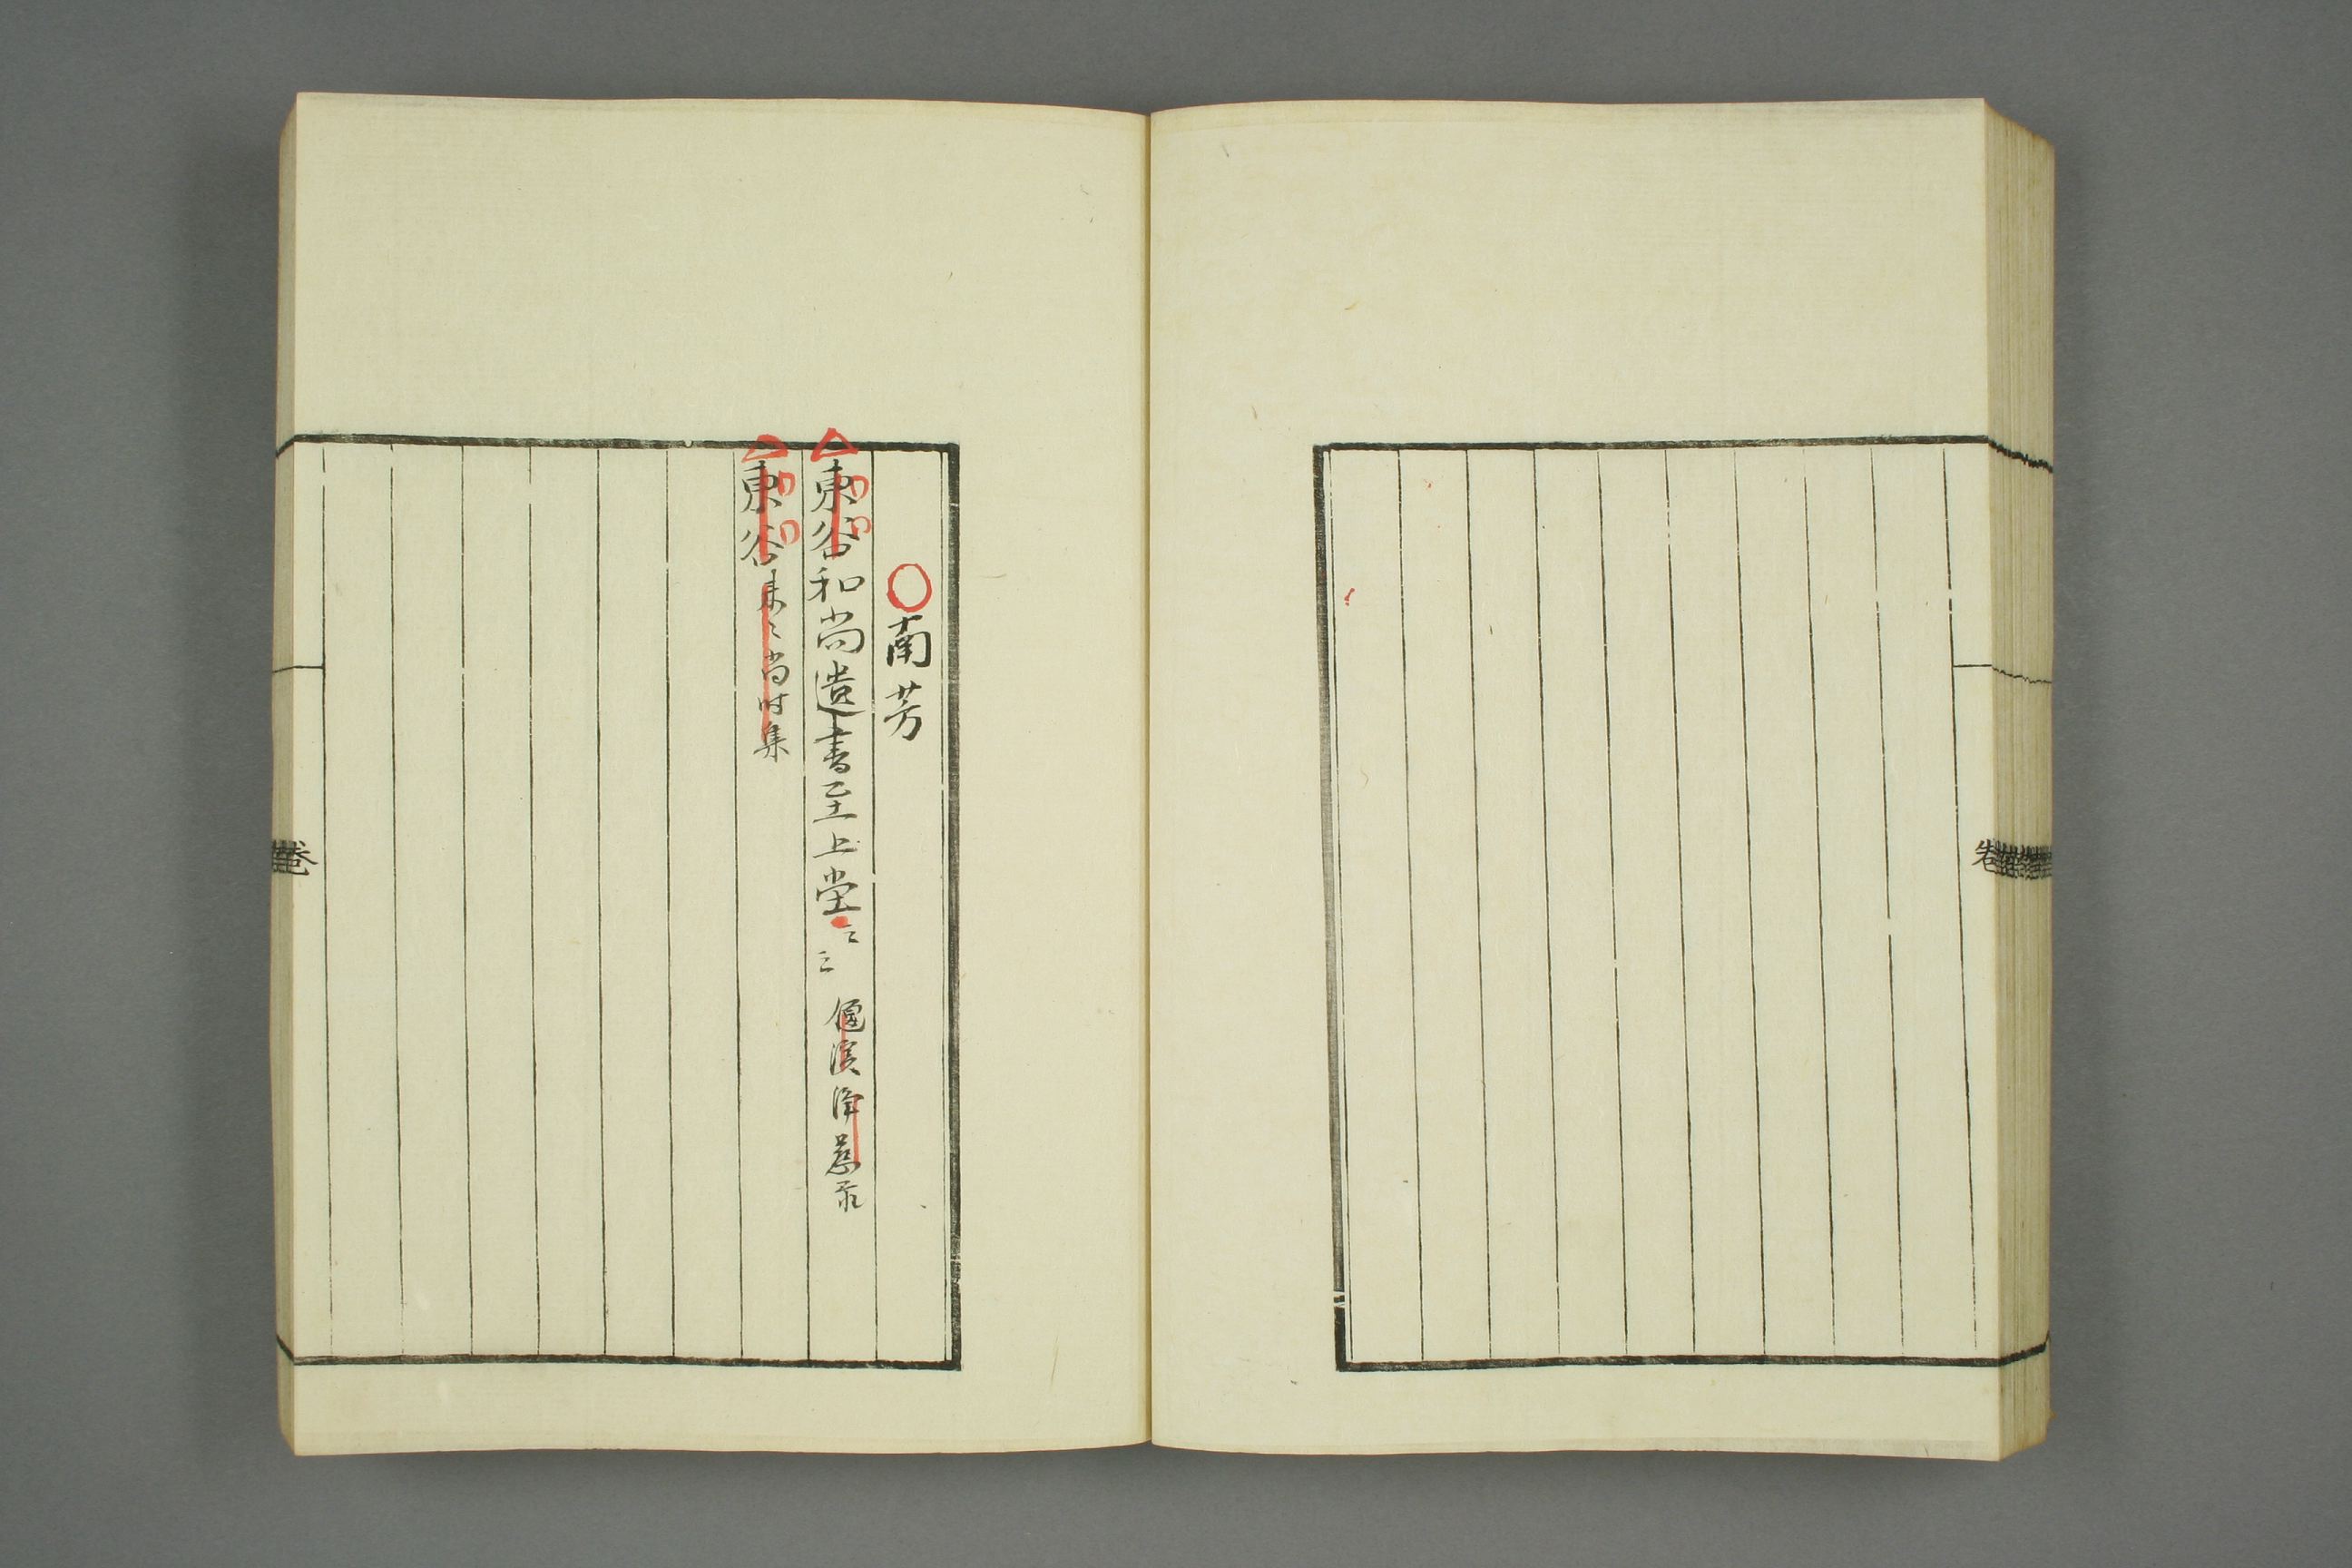 ○南芳
△東谷和尚遺書至上堂云云 偃溪淨慈录
△東谷東谷尚时集
卷